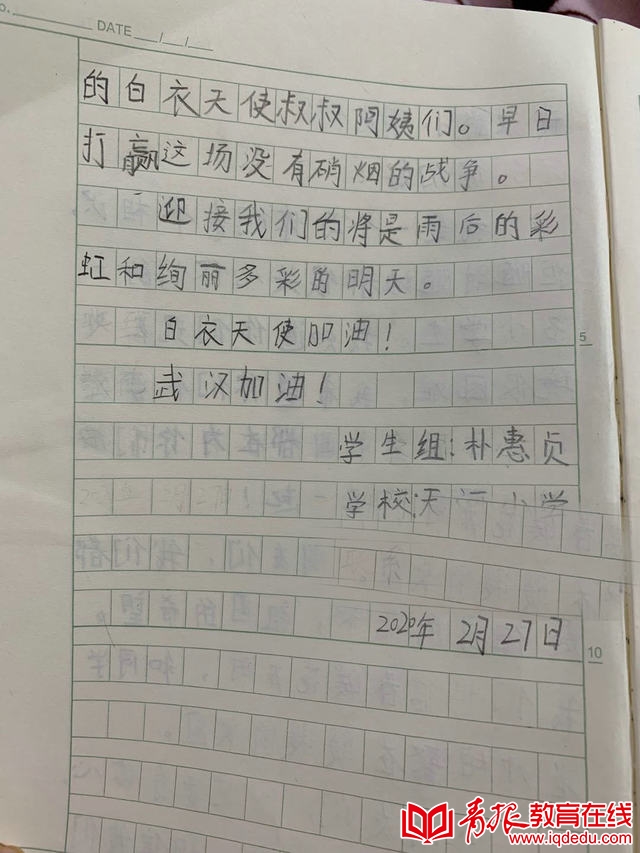 DATE
的白衣天使叔叔阿姨们。早日
打赢这场没有硝烟的战争。
迎接我们的将是雨后的彩
虹和绚丽多彩的明天。
白衣天使加油！
5
武汉加油！
学生组：朴惠贞
学校：天河小学
2020年2月27日
10
青报教育在线
www.iqdedu.com